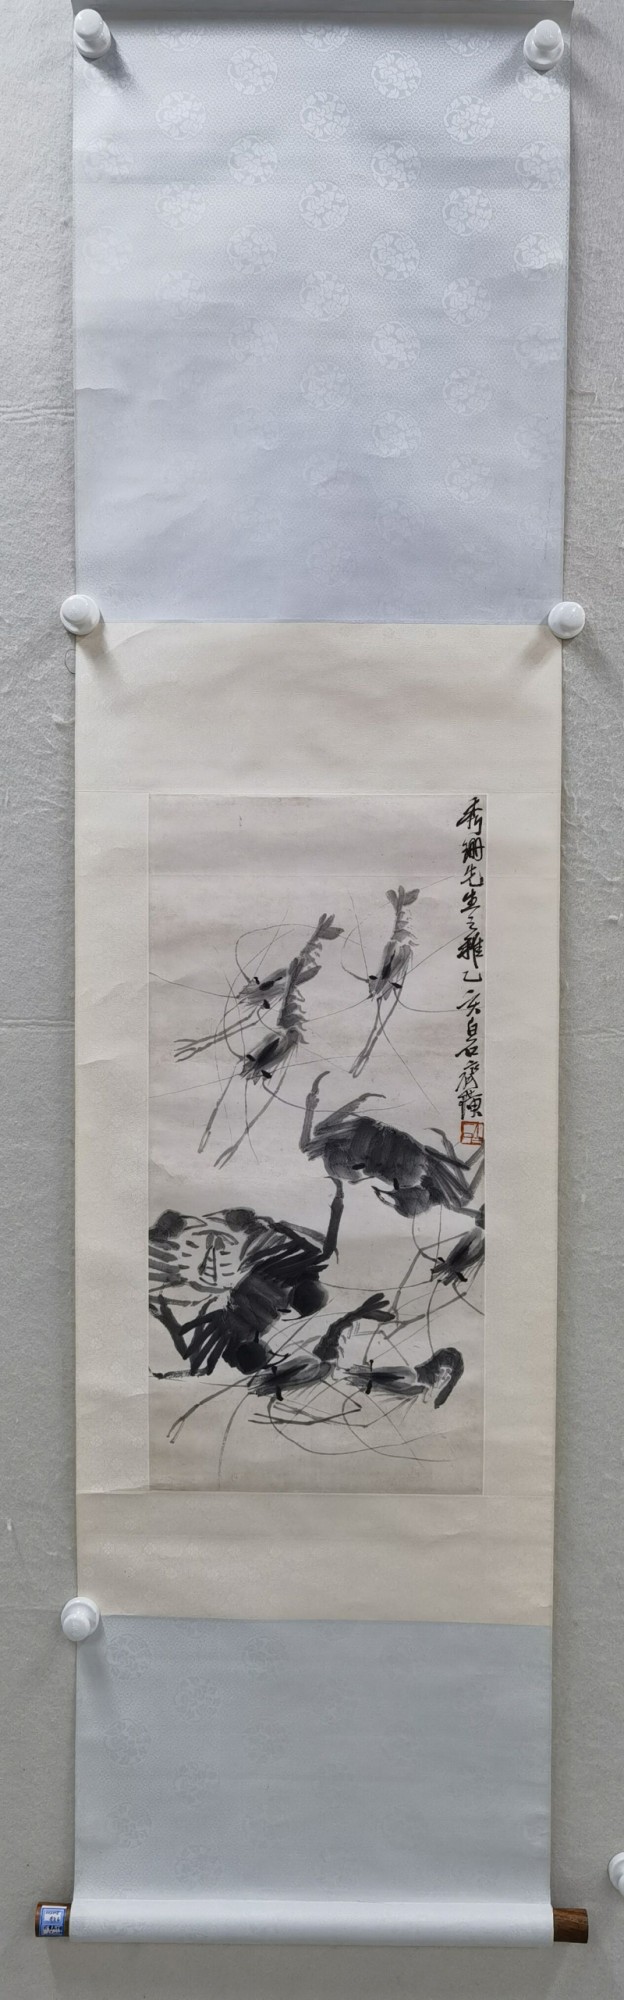 秀珊先生之雅乙亥白石齊璜